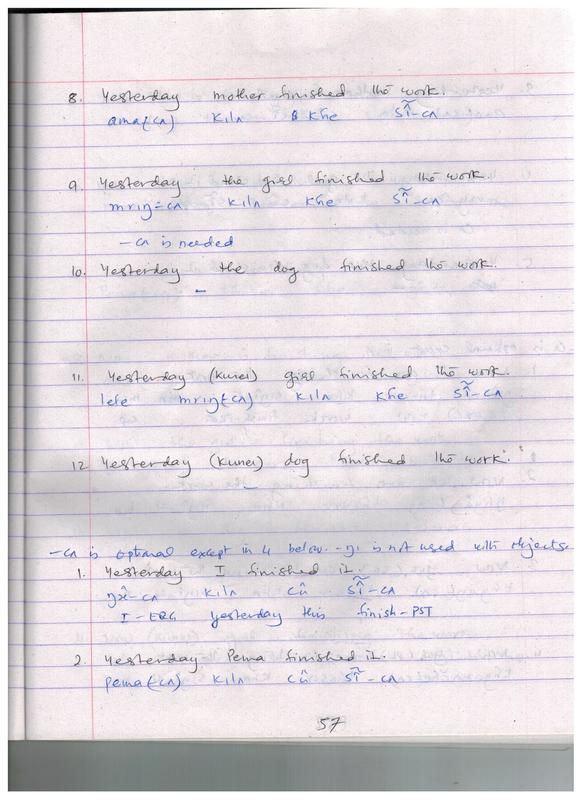 8. Yesterday mother finished the work.
ama(-cʌ) kilʌ khe sĩ̂-cʌ
9. Yesterday the girl finished the work.
mriŋ-cʌ kilʌ khe sĩ̂-cʌ
-cʌ is needed
10. Yesterday the dog finished the work.
–
11. Yesterday (kunei) girl finished the work.
lefe mriŋ(-cʌ) kilʌ khe sĩ̂-cʌ
12 Yesterday (kunei) dog finished the work.
–
-cʌ is optional except in 4 below. -ŋi is not used with objects
1. Yesterday I finished it.
ŋʌ̂-cʌ kilʌ cû sĩ̂-cʌ
I-ERG yesterday this finish-PST
2. Yesterday Pema finished it.
pema(-cʌ) kilʌ cû sĩ̂-cʌ
57